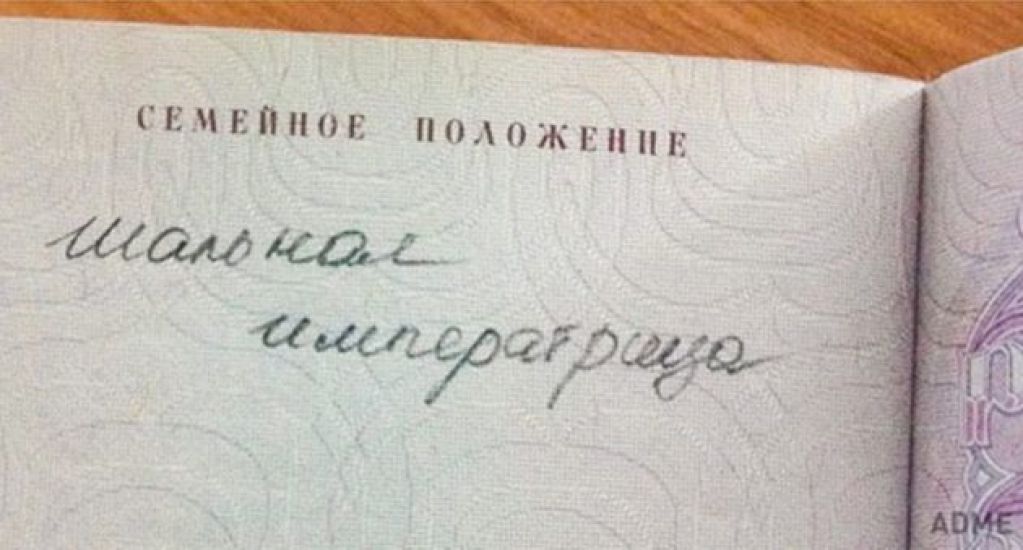 СЕМЕЙНОЕ ПОЛОЖЕНИЕ
шальная
императрица
ADME